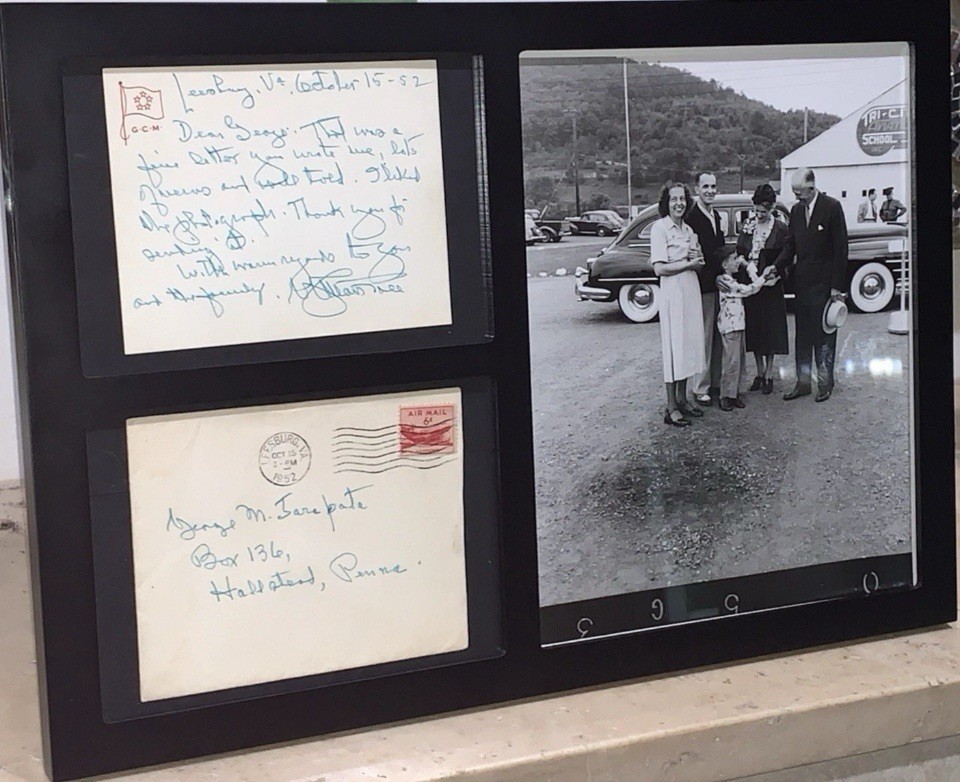 G·C·M·
Leesburg, Va. October 15-52
Dear George: That was a
fine letter you wrote me, lots
of news and well told. I liked
the photograph. Thank you for
sending it.
With warm regards to you
and the family.
AIR MAIL
6¢
LEESBURG, VA.
OCT 15
PM
1952
George M. Tarapata
Box 136,
Hallstead, Penna.
TRI-C
SCHOOL